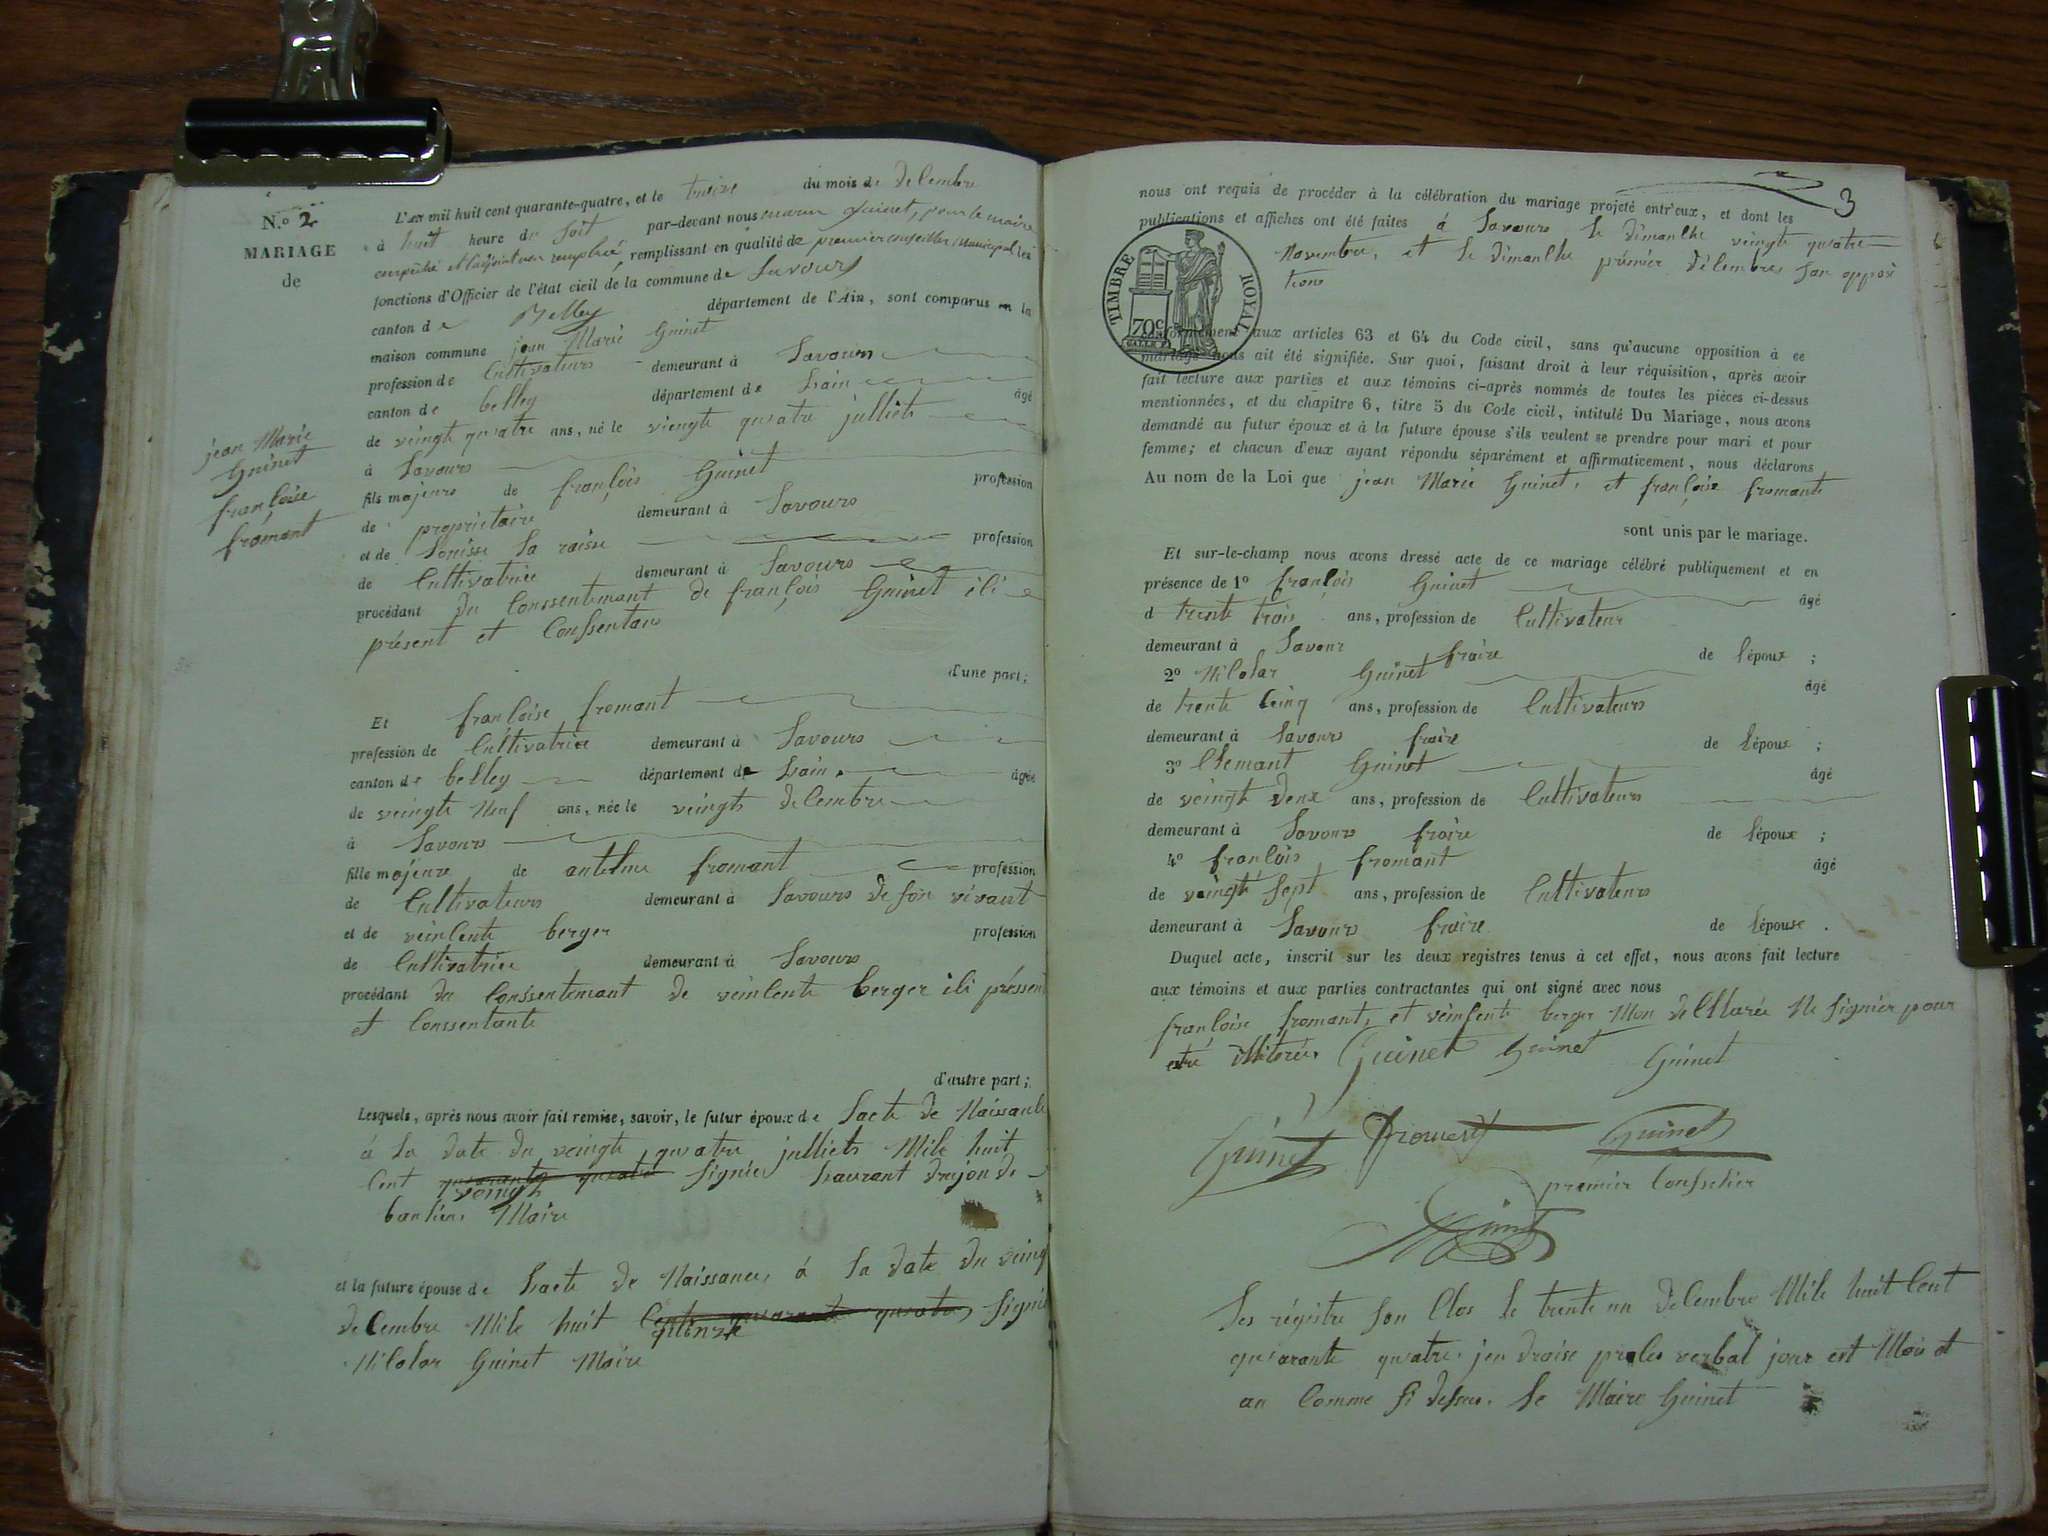 N.º 2
MARIAGE
de
jean Marie
Guinet
françoise
fromant
L'an mil huit cent quarante-quatre, et le treize du mois de decembre
à huit heure du soit par-devant nous Guinet, pour le maire
empêché et l'adjoint non remplacé, remplissant en qualité de premier conseiller municipal les
fonctions d'Officier de l'état civil de la commune de Savours
canton de Belley département de l'Ain, sont comparus en la
maison commune jean Marie Guinet
profession de Cultivateurs demeurant à Savours
canton de belley département de Lain âgé
de veingt quatre ans, né le viengt quatre julliets
à Savours
fils majeurs de françois Guinet profession
de propriétaire demeurant à Savours
et de Louisse La raisse profession
de Cultivatrice demeurant à Savours
procédant du Conssentemant de françois Guinet ili
présent et Conssentans
d'une part;
Et françoise fromant
profession de Cultivatrice demeurant à Savours
canton de belley département de Lain âgée
de veingte Neuf ans, née le veingts decembre
à Savours
fille majeure de antelme fromant profession
de Cultivateurs demeurant à Savours de son vivant
et de veincente berger profession
de Cultivatrice demeurant à Savours
procédant du Conssentemant de veincente berger ili préssent
et Conssentante
d'autre part;
Lesquels, après nous avoir fait remise, savoir, le futur époux de Lacte de Naissance
à la date du veingte quatre julliets Mile huit
Cent quarante quatre veingts Signié Laurant dujon de
bansien Maire
et la future épouse de Lacte de Naissance, à la date du veing
decembre Mile huit Cent quarante quatre quinze Signié
Nicolas Guinet Maire
3
nous ont requis de procéder à la célébration du mariage projeté entr'eux, et dont les
publications et affiches ont été faites à Savours le dimanche veingte quatre
Novembre, et le dimanche prémier décembre san opposi
tions
TIMBRE ROYAL
70 c
conformément aux articles 63 et 64 du Code civil, sans qu'aucune opposition à ce
mariage nous ait été signifiée. Sur quoi, faisant droit à leur réquisition, après avoir
fait lecture aux parties et aux témoins ci-après nommés de toutes les pièces ci-dessus
mentionnées, et du chapitre 6, titre 5 du Code civil, intitulé Du Mariage, nous avons
demandé au futur époux et à la future épouse s'ils veulent se prendre pour mari et pour
femme; et chacun d'eux ayant répondu séparément et affirmativement, nous déclarons
Au nom de la Loi que jean Marie Guinet, et françoise fromante
sont unis par le mariage.
Et sur-le-champ nous avons dressé acte de ce mariage célébré publiquement et en
présence de 1º françois Guinet âgé
d trente trois ans, profession de Cultivateur
demeurant à Savour fraire de lépoux ;
2º Nicolas Guinet âgé
de trente Cinq ans, profession de Cultivateurs
demeurant à Savours fraire de lépoux ;
3º Clemant Guinet âgé
de veingte deux ans, profession de Cultivateurs
demeurant à Savours fraire de lépoux ;
4º françois fromant âgé
de veingte Sept ans, profession de Cultivateurs
demeurant à Savours fraire de lépouse .
Duquel acte, inscrit sur les deux registres tenus à cet effet, nous avons fait lecture
aux témoins et aux parties contractantes qui ont signé avec nous
françoise fromant, et veinsente berger Mon decllarée Ne Signier pour
etre illiteré. Guinet Guinet Guinet
Guinet Froment Guinet
premier Consselier
Guinet
Les régistre Son Clos le trente un decembre Mile huit Cent
quarante quatre. jeu draise proles verbal jour est Moi et
an Comme si desus. le Maire Guinet